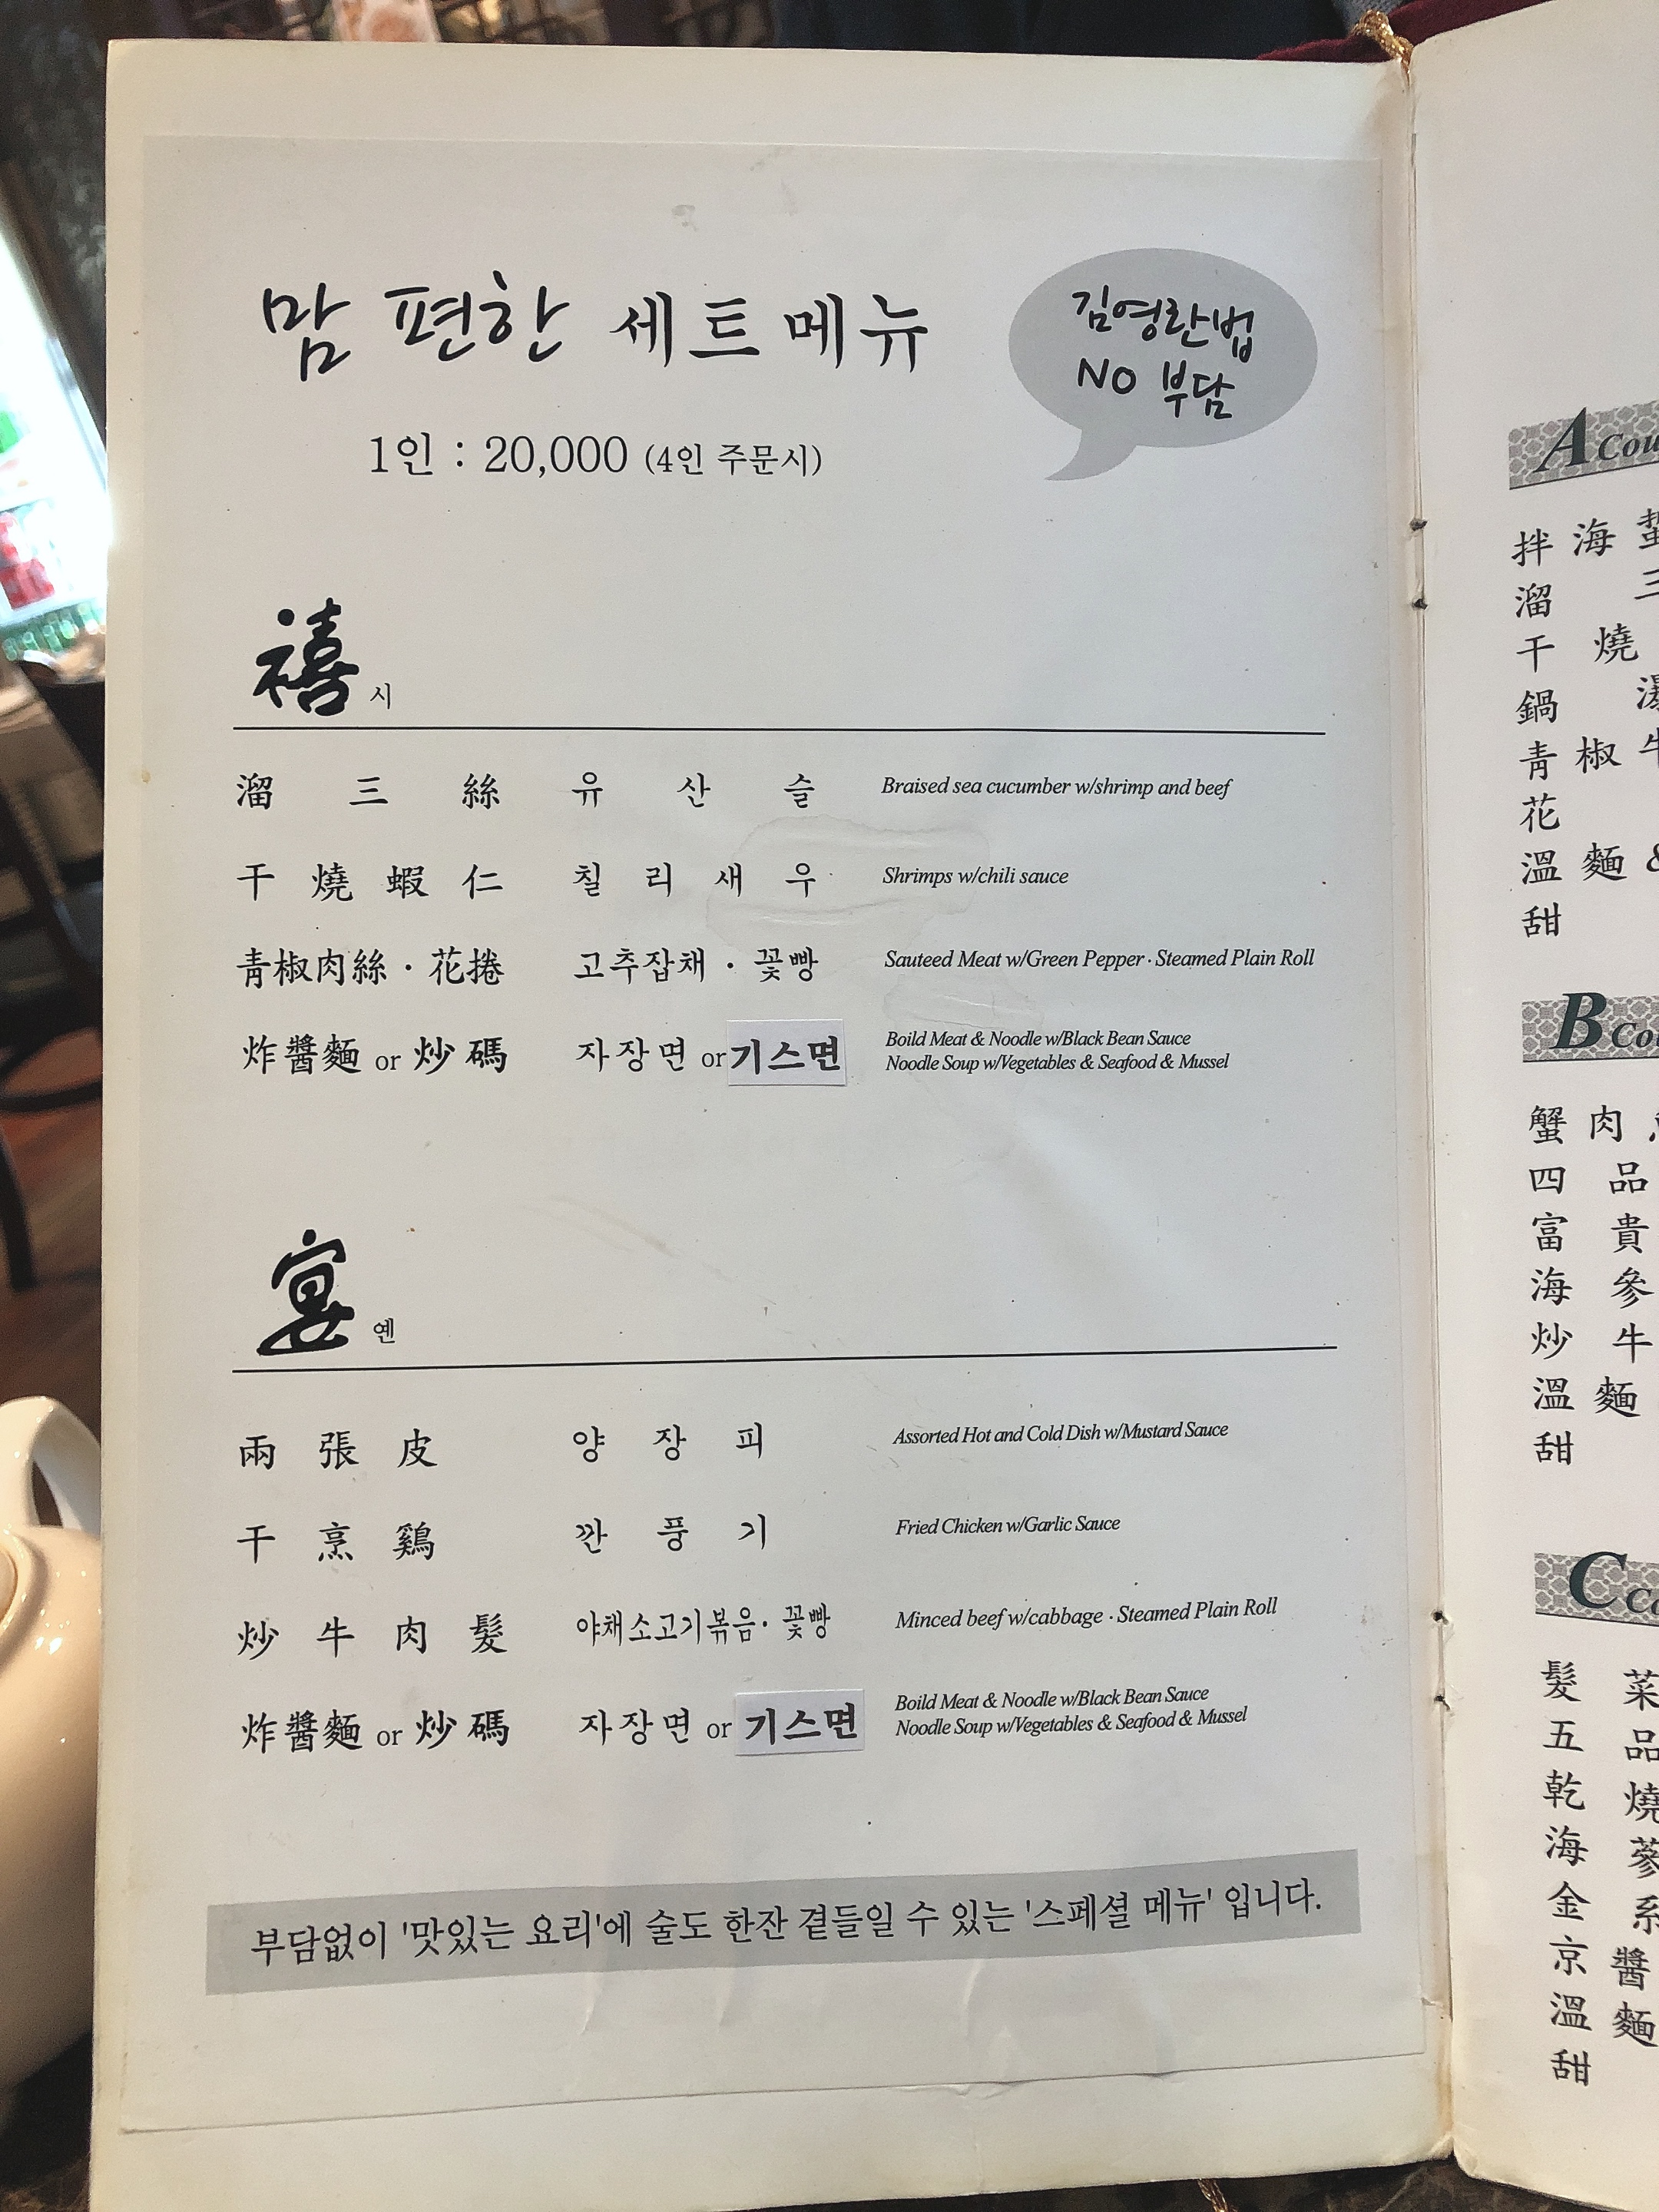 맘 편한 세트메뉴
김영란법
NO 부담
1인 : 20,000 (4인 주문시)
禧 시
溜三絲 유산슬 Braised sea cucumber w/shrimp and beef
干燒蝦仁 칠리새우 Shrimps w/chili sauce
靑椒肉絲 · 花捲 고추잡채 · 꽃빵 Sauteed Meat w/Green Pepper · Steamed Plain Roll
炸醬麵 or 炒碼 자장면 or 기스면 Boild Meat & Noodle w/Black Bean Sauce
Noodle Soup w/Vegetables & Seafood & Mussel
宴 옌
兩張皮 양장피 Assorted Hot and Cold Dish w/Mustard Sauce
干烹鷄 깐풍기 Fried Chicken w/Garlic Sauce
炒牛肉髮 야채소고기볶음 · 꽃빵 Minced beef w/cabbage · Steamed Plain Roll
炸醬麵 or 炒碼 자장면 or 기스면 Boild Meat & Noodle w/Black Bean Sauce
Noodle Soup w/Vegetables & Seafood & Mussel
부담없이 '맛있는 요리'에 술도 한잔 곁들일 수 있는 '스페셜 메뉴' 입니다.
A
拌海
溜三
干燒
鍋
靑椒牛
花
溫麵 &
甜
B
蟹肉
四品
富貴
海參
炒牛
溫麵
甜
C
髮菜
五品
乾燒
海蔘
金系
京醬
溫麵
甜